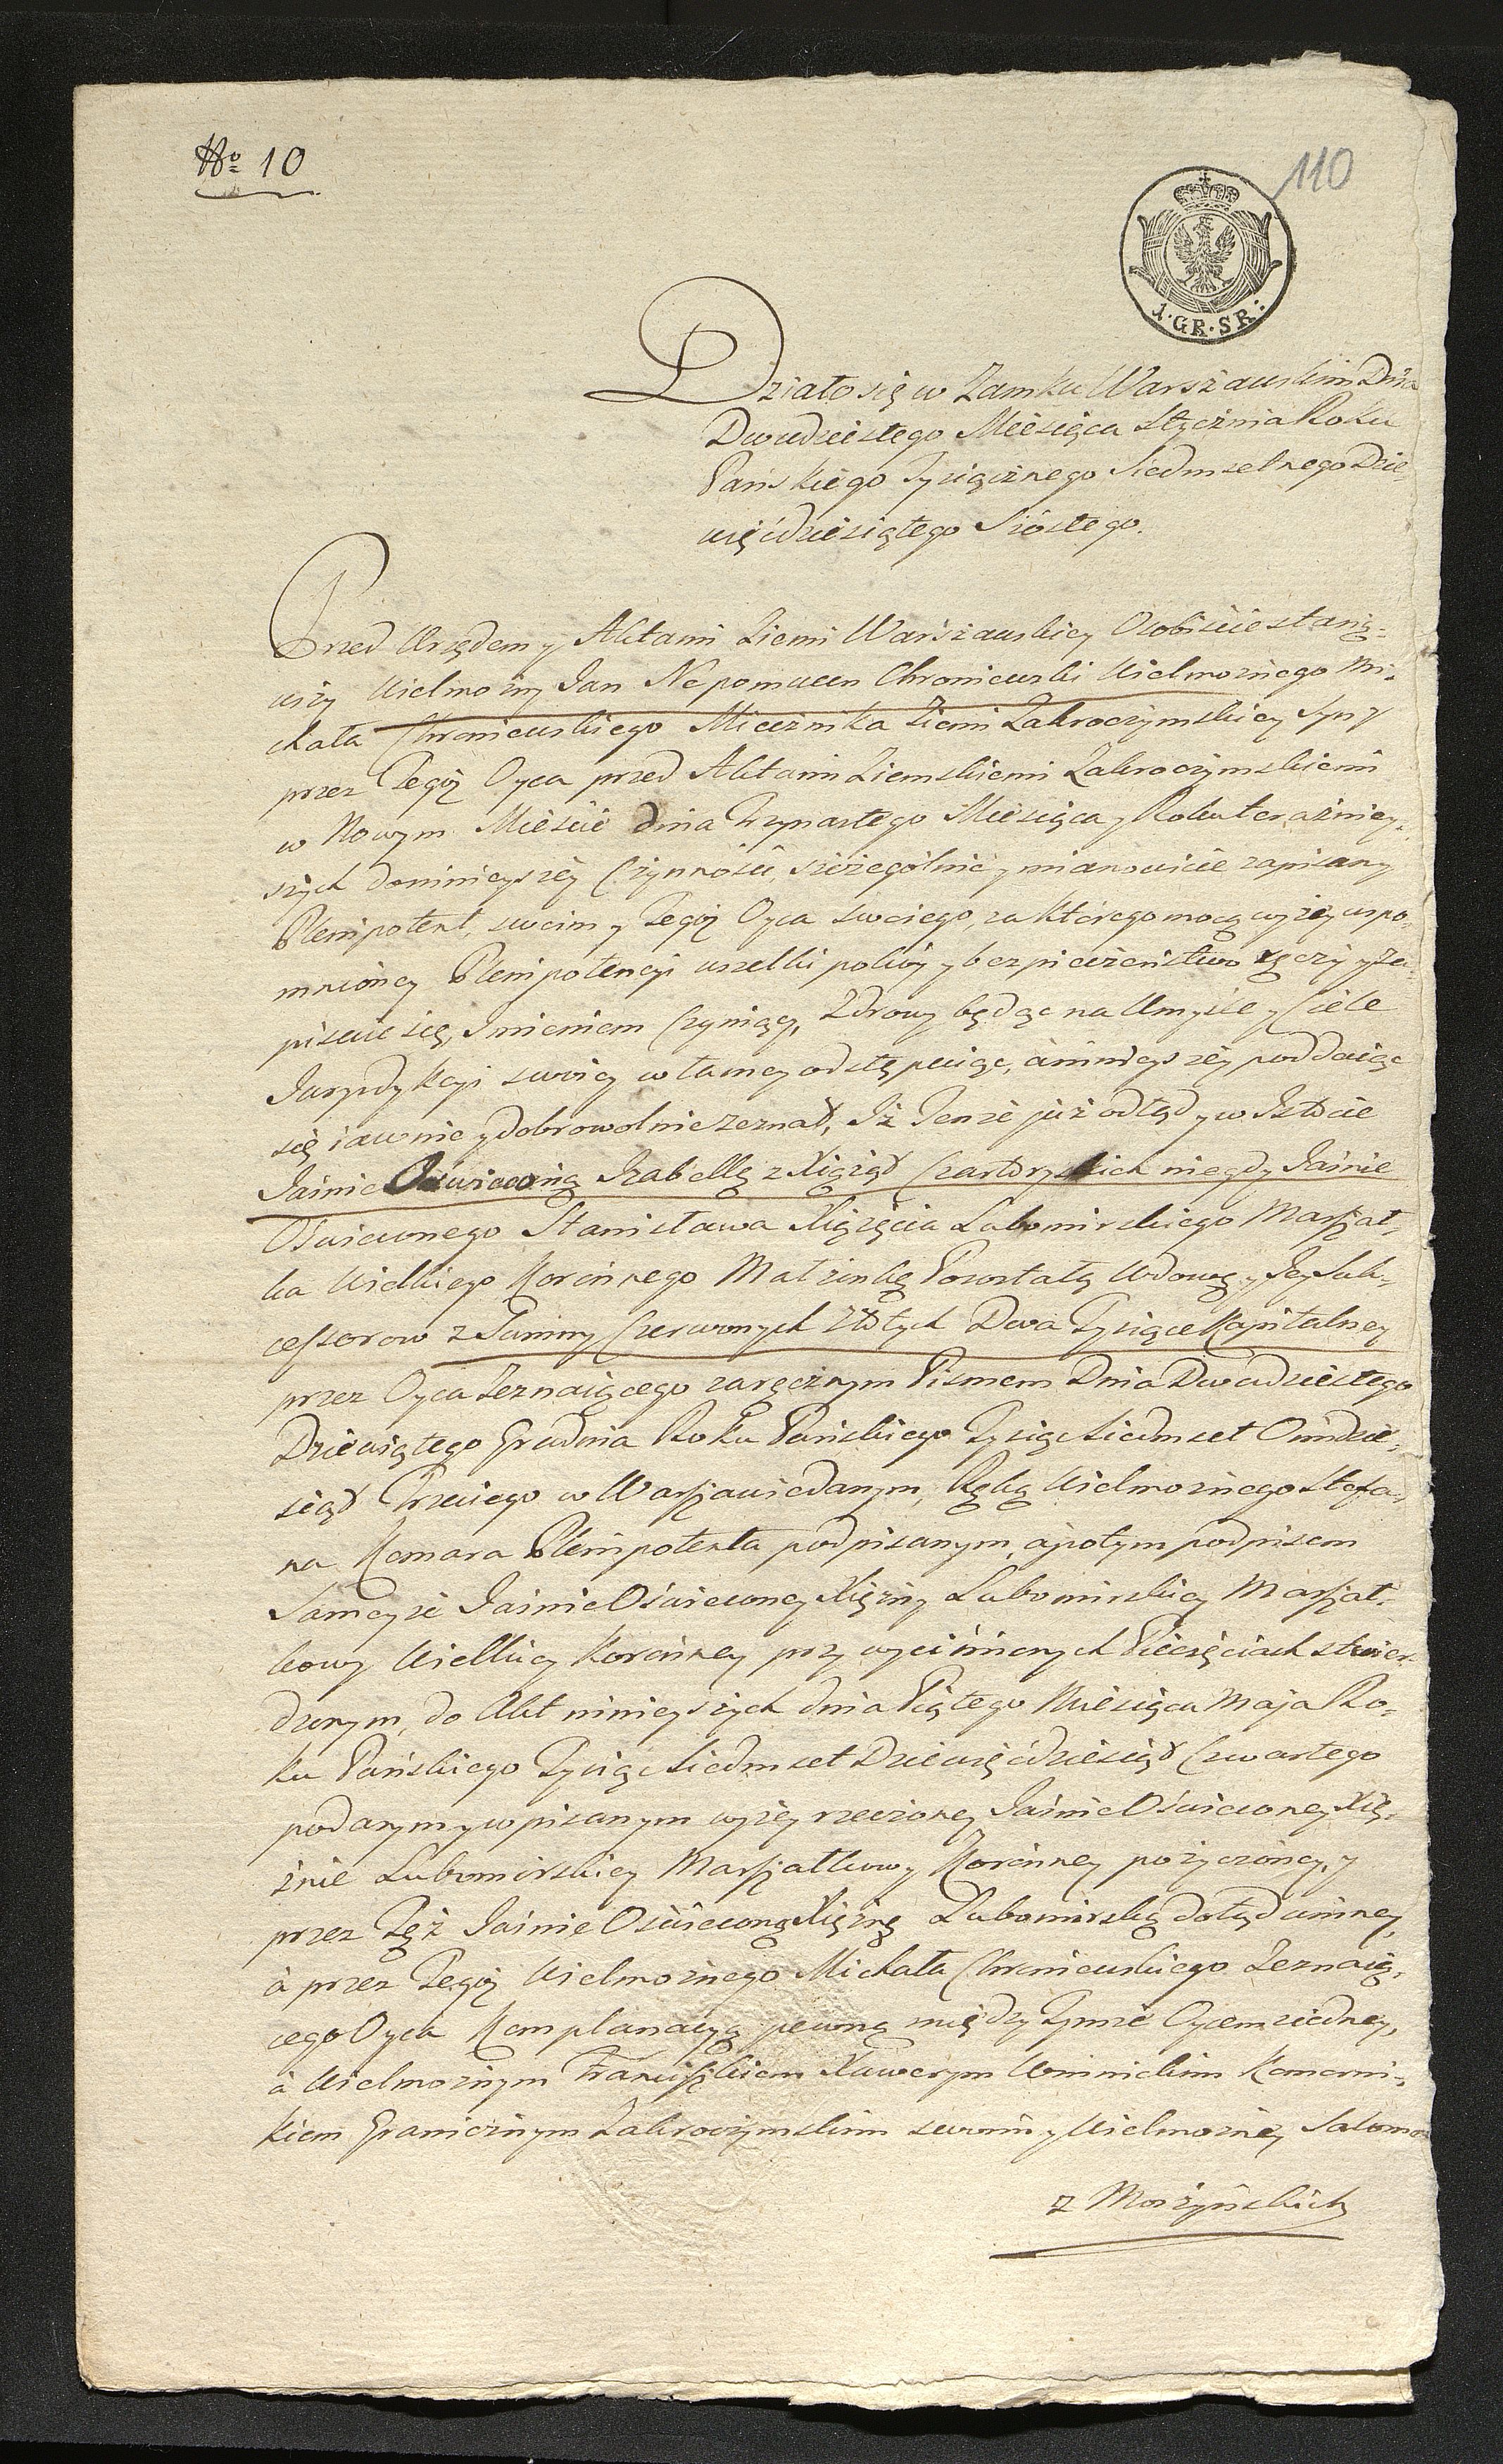 No 10
110
1. GR. SR:
Działo się w Zamku Warszawskim Dnia
Dwudziestego Miesiąca Stycznia Roku
Pańskiego Tysiącznego Siedmsetnego Dzie-
więćdziesiątego Szóstego.
Przed Urzędem y Aktami Ziemi Warszawskiey Osobiście staną-
wszy Wielmożny Jan Nepomucen Chroniewski Wielmożnego Mi-
chała Chroniewskiego Miecznika Ziemi Zakroczymskiey Syn y
przez Tegoż Oyca przed Aktami Ziemskiemi Zakroczymskiemi
w Nowym Mieście dnia Trzynastego Miesiąca y Roku teraźniey-
szych do ninieyszey Czynności szczegulnie y mianowicie zapisany
Plenipotent, swoim y Tegoż Oyca swoiego, za którego mocą wyżey wspo-
mnioney Plenipotencyi wszelki pokóy y bezpieczeństwo ręczy y za-
pisuie się, Imieniem czyniąc, Zdrowy będąc na Umyśle y Ciele
Juryzdykcyi swoiey własney odstępuiąc, a ninieyszey poddaiąc
się iawnie y dobrowolnie zeznał, Iż Tenże już odtąd y w Istocie
Jaśnie Oświeconą Izabellę z Xiążąt Czartoryskich niegdy Jaśnie
Oświeconego Stanisława Xiążęcia Lubomirskiego Marszał-
ka Wielkiego Koronnego Małżonkę Pozostałą Wdowę y Jey Suk-
cessorow z Summy Czerwonych Złotych Dwa Tysiące Kapitalney
przez Oyca Zeznaiącego zaręcznym Pismem Dnia Dwudziestego
Dziewiątego Grudnia Roku Pańskiego Tysiąc Siedmset Ośmdzie-
siąt Trzeciego w Warszawie danym, Ręką Wielmożnego Stefa-
na Komara Plenipotenta podpisanym, a potym podpisem
Sameyże Jaśnie Oświeconey Xiężny Lubomirskiey Marszał-
kowy Wielkiey Koronney przy wyciśnionych Pieczęciach stwier-
dzonym, do Akt ninieyszych dnia Piątego Miesiąca Maja Ro-
ku Pańskiego Tysiąc Siedmset Dziewięćdziesiąt Czwartego
podanym y wpisanym wyżey rzeczoney Jaśnie Oświeconey Xię-
żnie Lubomirskiey Marszałkowy Koronney pożyczoney, y
przez Tęż Jaśnie Oświeconą Xiężnę Lubomirską dotąd winney,
a przez Tegoż Wielmożnego Michała Chroniewskiego Zeznaią-
cego Oyca Komplanacyą pewną między Tymże Oycem z iedney,
a Wielmożnym Franciszkiem Xawerym Winnickim Komorni-
kiem Granicznym Zakroczymskim swoim y Wielmożney Salomei
z Moszyńskich